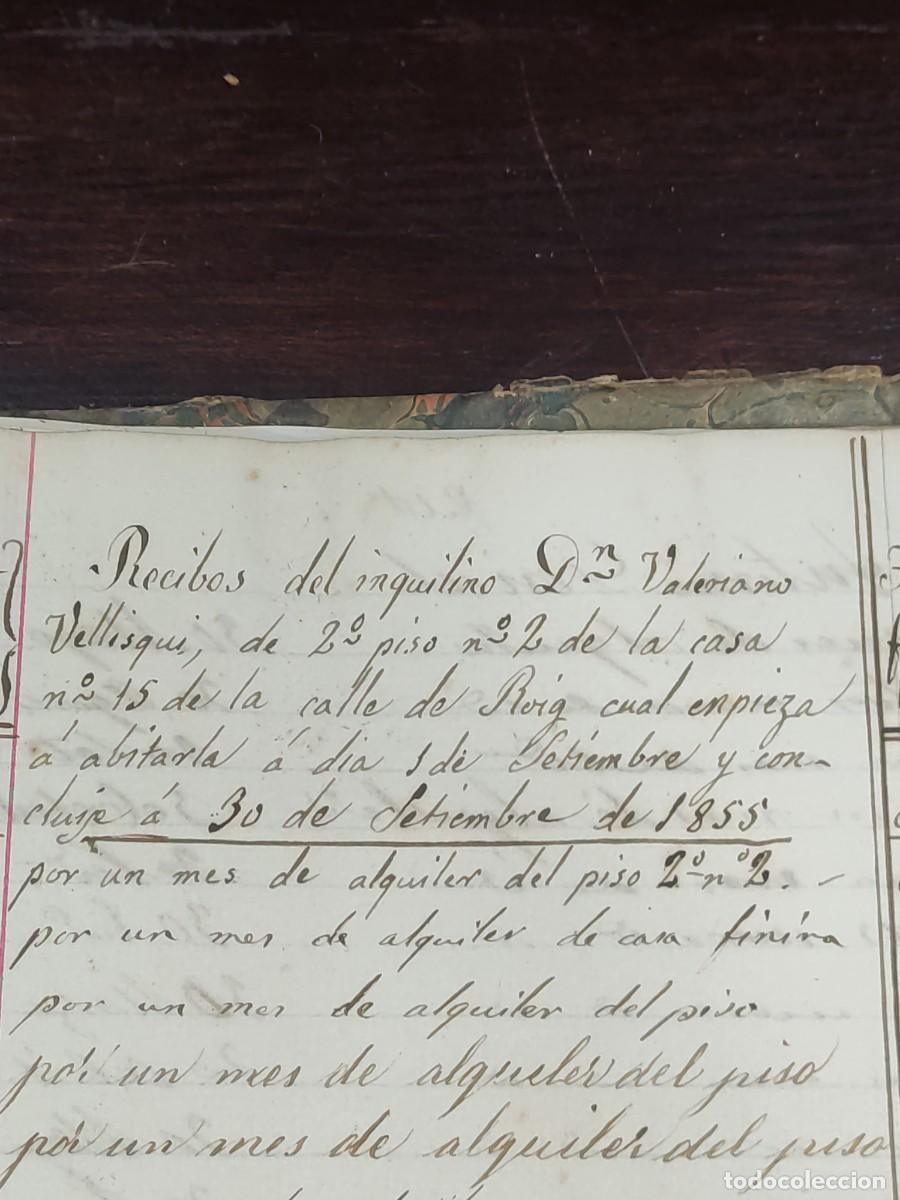 Recibos del inquilino Dn Valeriano
Vellisqui, de 2º piso nº 2 de la casa
nº 15 de la calle de Roig cual enpieza
á abitarla á dia 1 de Setiembre y con-
cluije á 30 de Setiembre de 1855
por un mes de alquiler del piso 2º nº 2. -
por un mes de alquiler de casa finira
por un mes de alquiler del piso
por un mes de alqueler del piso
por un mes de alquiler del piso
todocoleccion